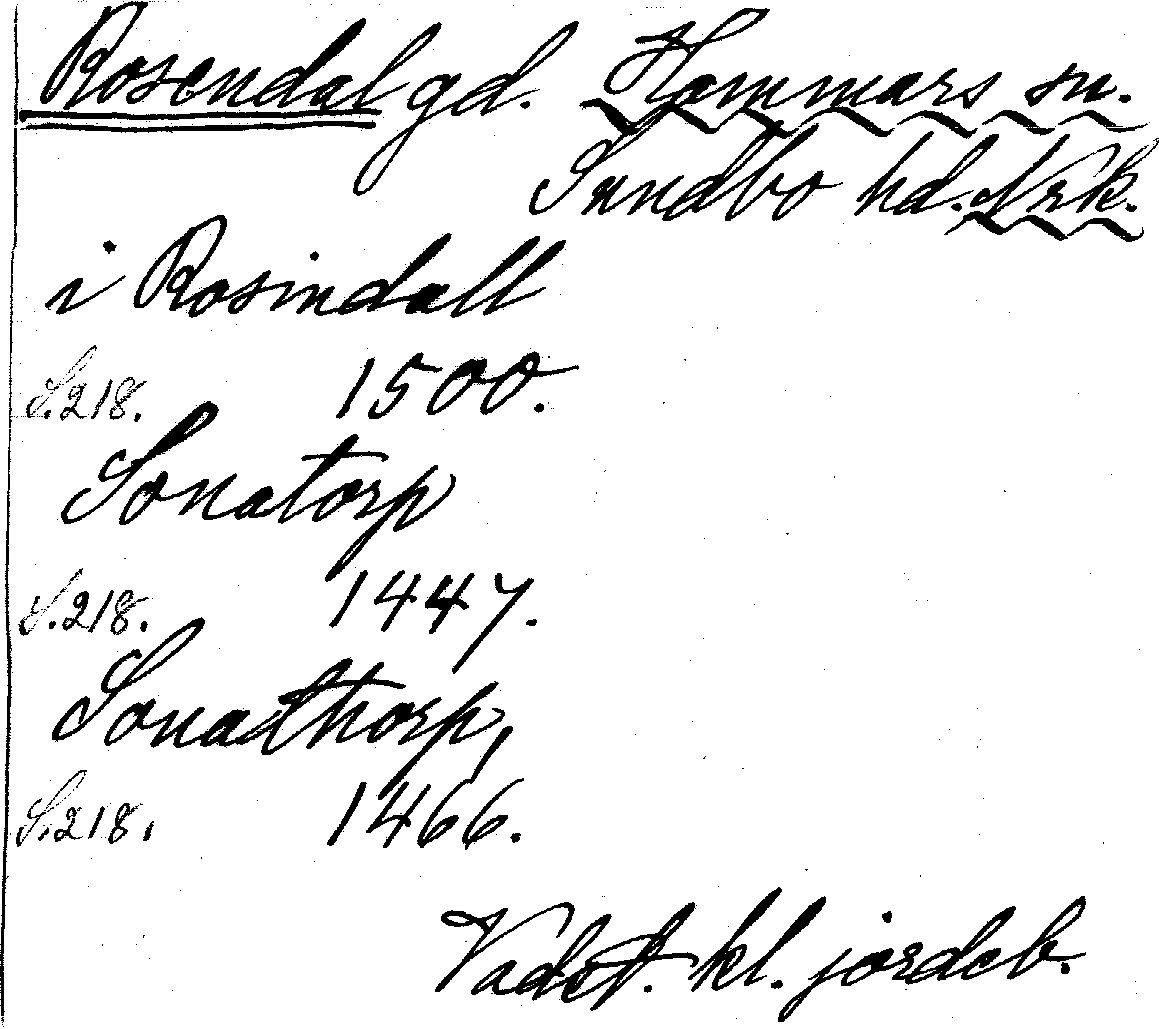 Rosendal gd. Hammars sn.
Sundbo hd. Nrk.
i Rosindall
S.218. 1500.
Sonatorp
S.218. 1447.
Sonathorp,
S.218. 1466.
Vadst. kl. jordeb.